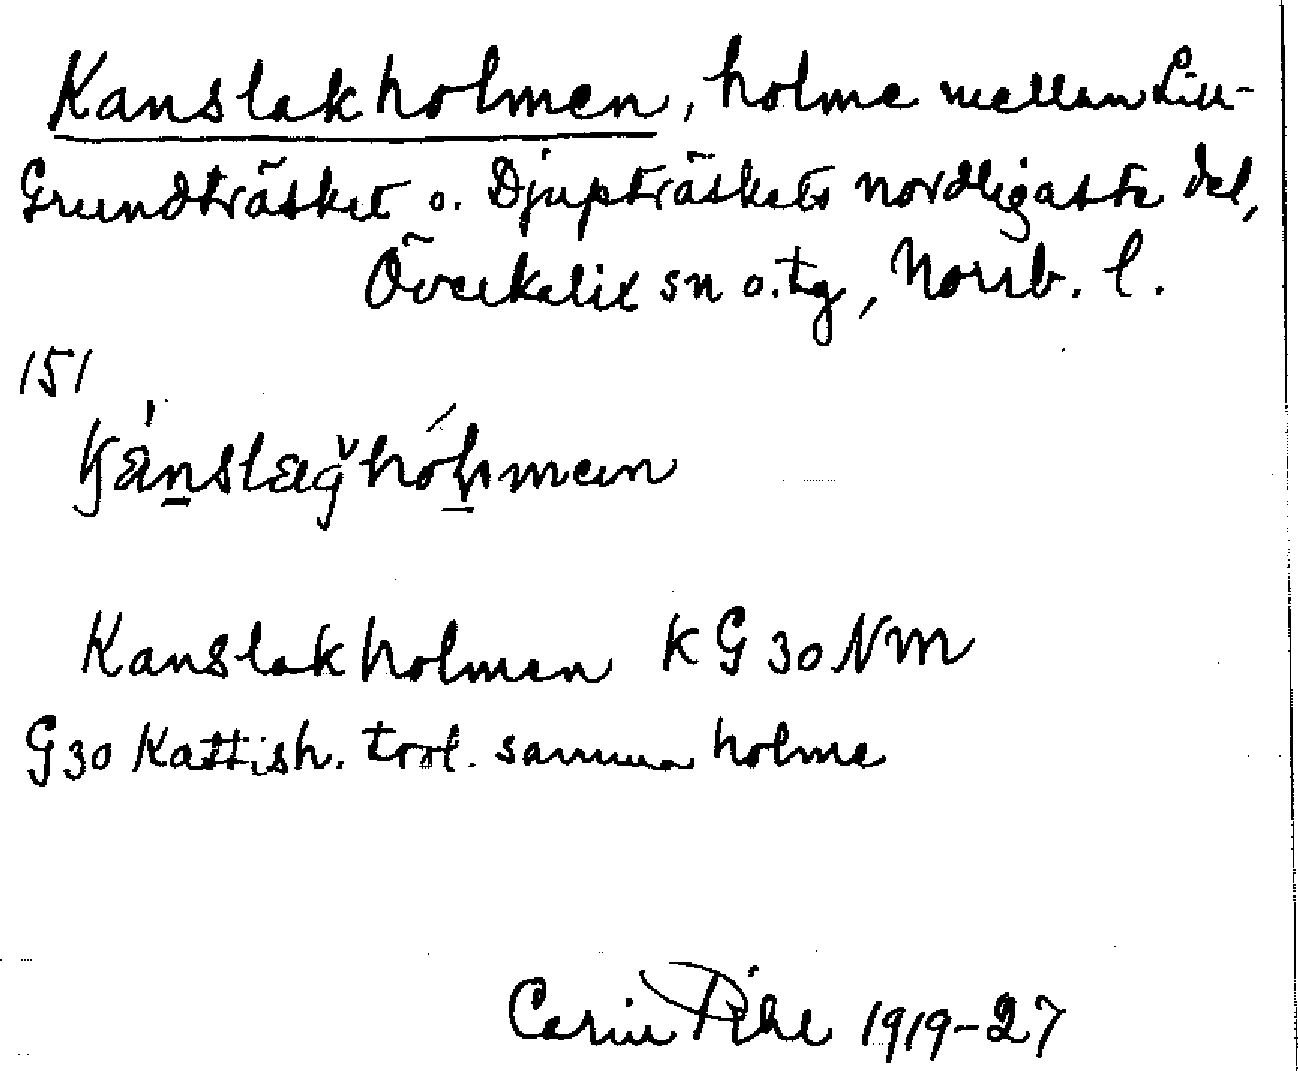 Kanslakholmen, holme mellan Lill-
Grundträsket o. Djupträskets nordligaste del,
Överkalix sn o. tg, Norrb. l.
151
Kanslakholmen KG 30 NM
G30 Kattish. trol. samma holme
Carin Pihl 1919-27